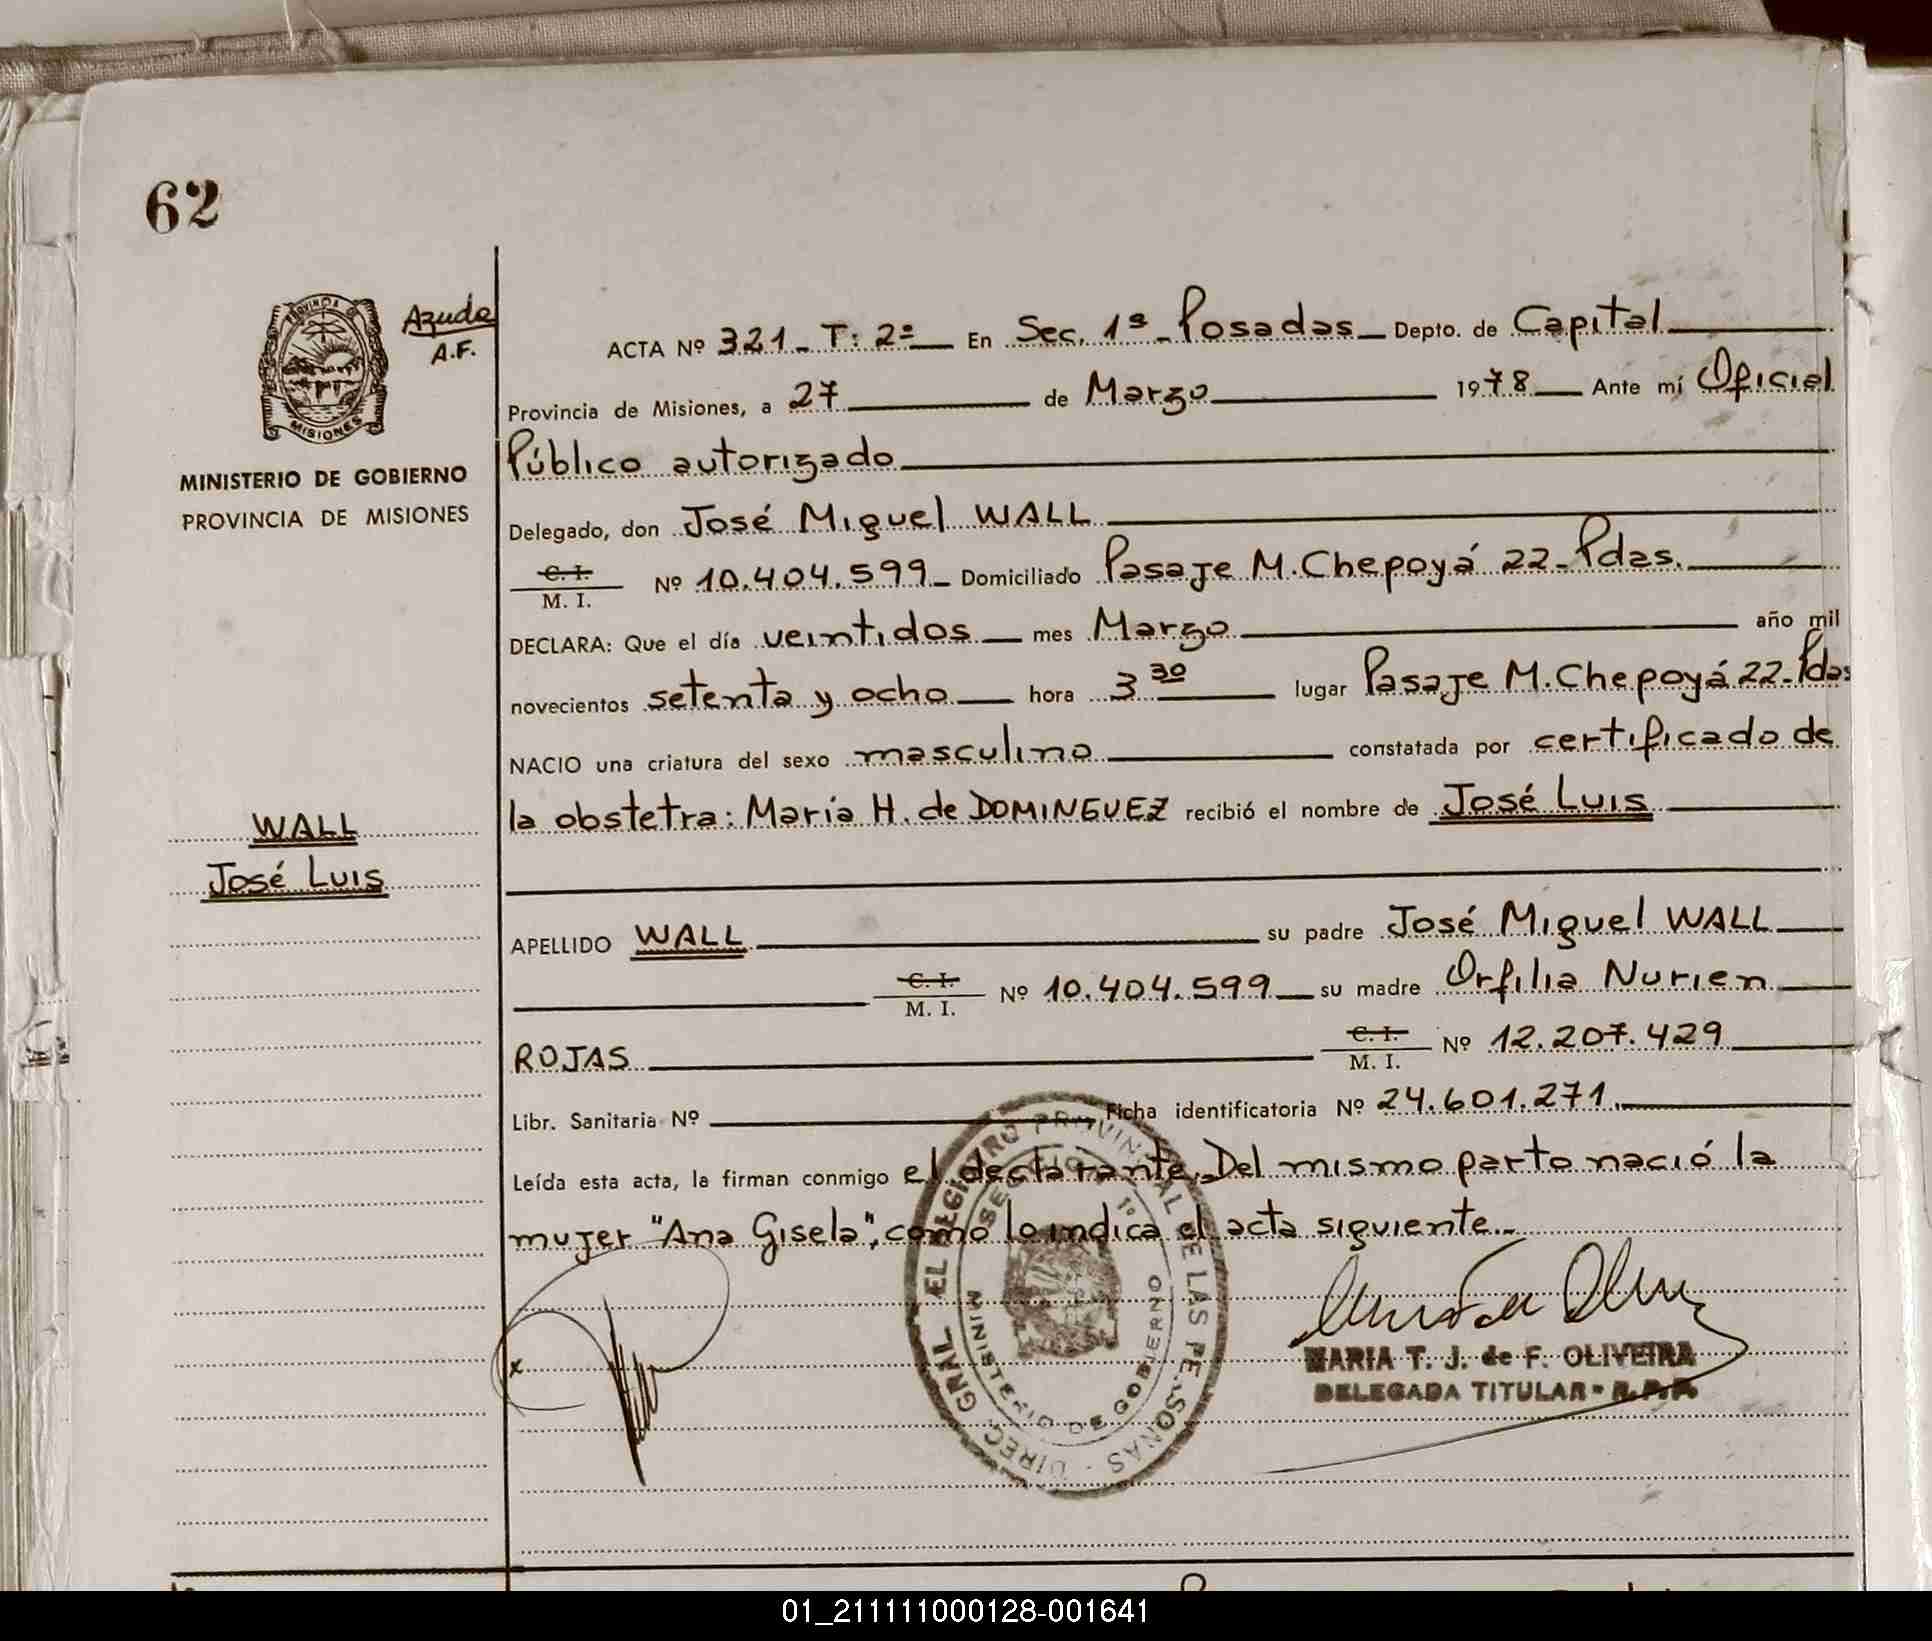 62
PROVINCIA DE
MISIONES
Azuda
A.F.
MINISTERIO DE GOBIERNO
PROVINCIA DE MISIONES
ACTA Nº 321 - T: 2º En Sec. 1ª - Posadas Depto. de Capital
Provincia de Misiones, a 27 de Marzo 1978 Ante mí Oficial
Público autorizado
Delegado, don José Miguel WALL
C. I.
M. I. Nº 10.404.599 Domiciliado Pasaje M. Chepoyá 22 - Pdas.
DECLARA: Que el día veintidos mes Marzo año mil
novecientos setenta y ocho hora 3 30 lugar Pasaje M. Chepoyá 22 - Pdas
NACIO una criatura del sexo masculino constatada por certificado de
la obstetra: María H. de DOMINGUEZ recibió el nombre de José Luis
WALL
José Luis
APELLIDO WALL su padre José Miguel WALL
C. I.
M. I. Nº 10.404.599 su madre Orfilia Nurien
ROJAS C. I.
M. I. Nº 12.207.429
Libr. Sanitaria Nº Ficha identificatoria Nº 24.601.271
Leída esta acta, la firman conmigo el declarante. Del mismo parto nació la
mujer "Ana Gisela", como lo indica el acta siguiente.-
DIREC. GRAL. EL REGISTRO PROVINCIAL DE LAS PERSONAS
MINISTERIO DE GOBIERNO
x
MARIA T. J. de F. OLIVEIRA
DELEGADA TITULAR - R.P.P.
01_211111000128-001641